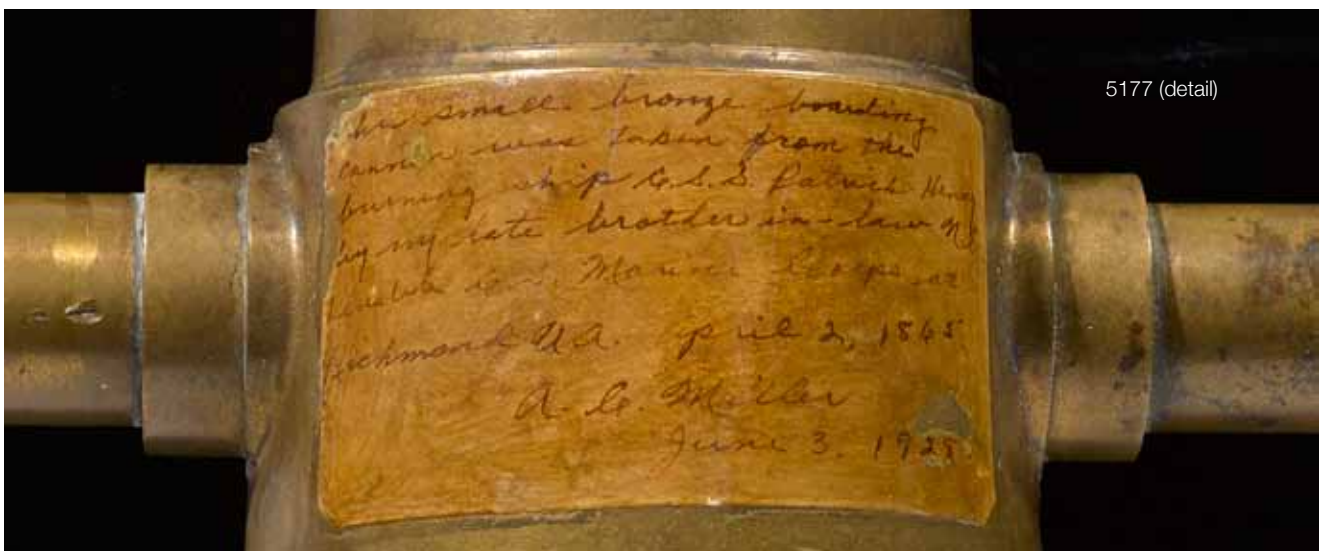 5177 (detail)
his small bronze boarding
cannon was taken from the
burning ship C.S.S. Patrick Henry
by my late brother in-law
Marine Corps at
Richmond VA. pril 2, 1865
A. C. Miller
June 3, 1928